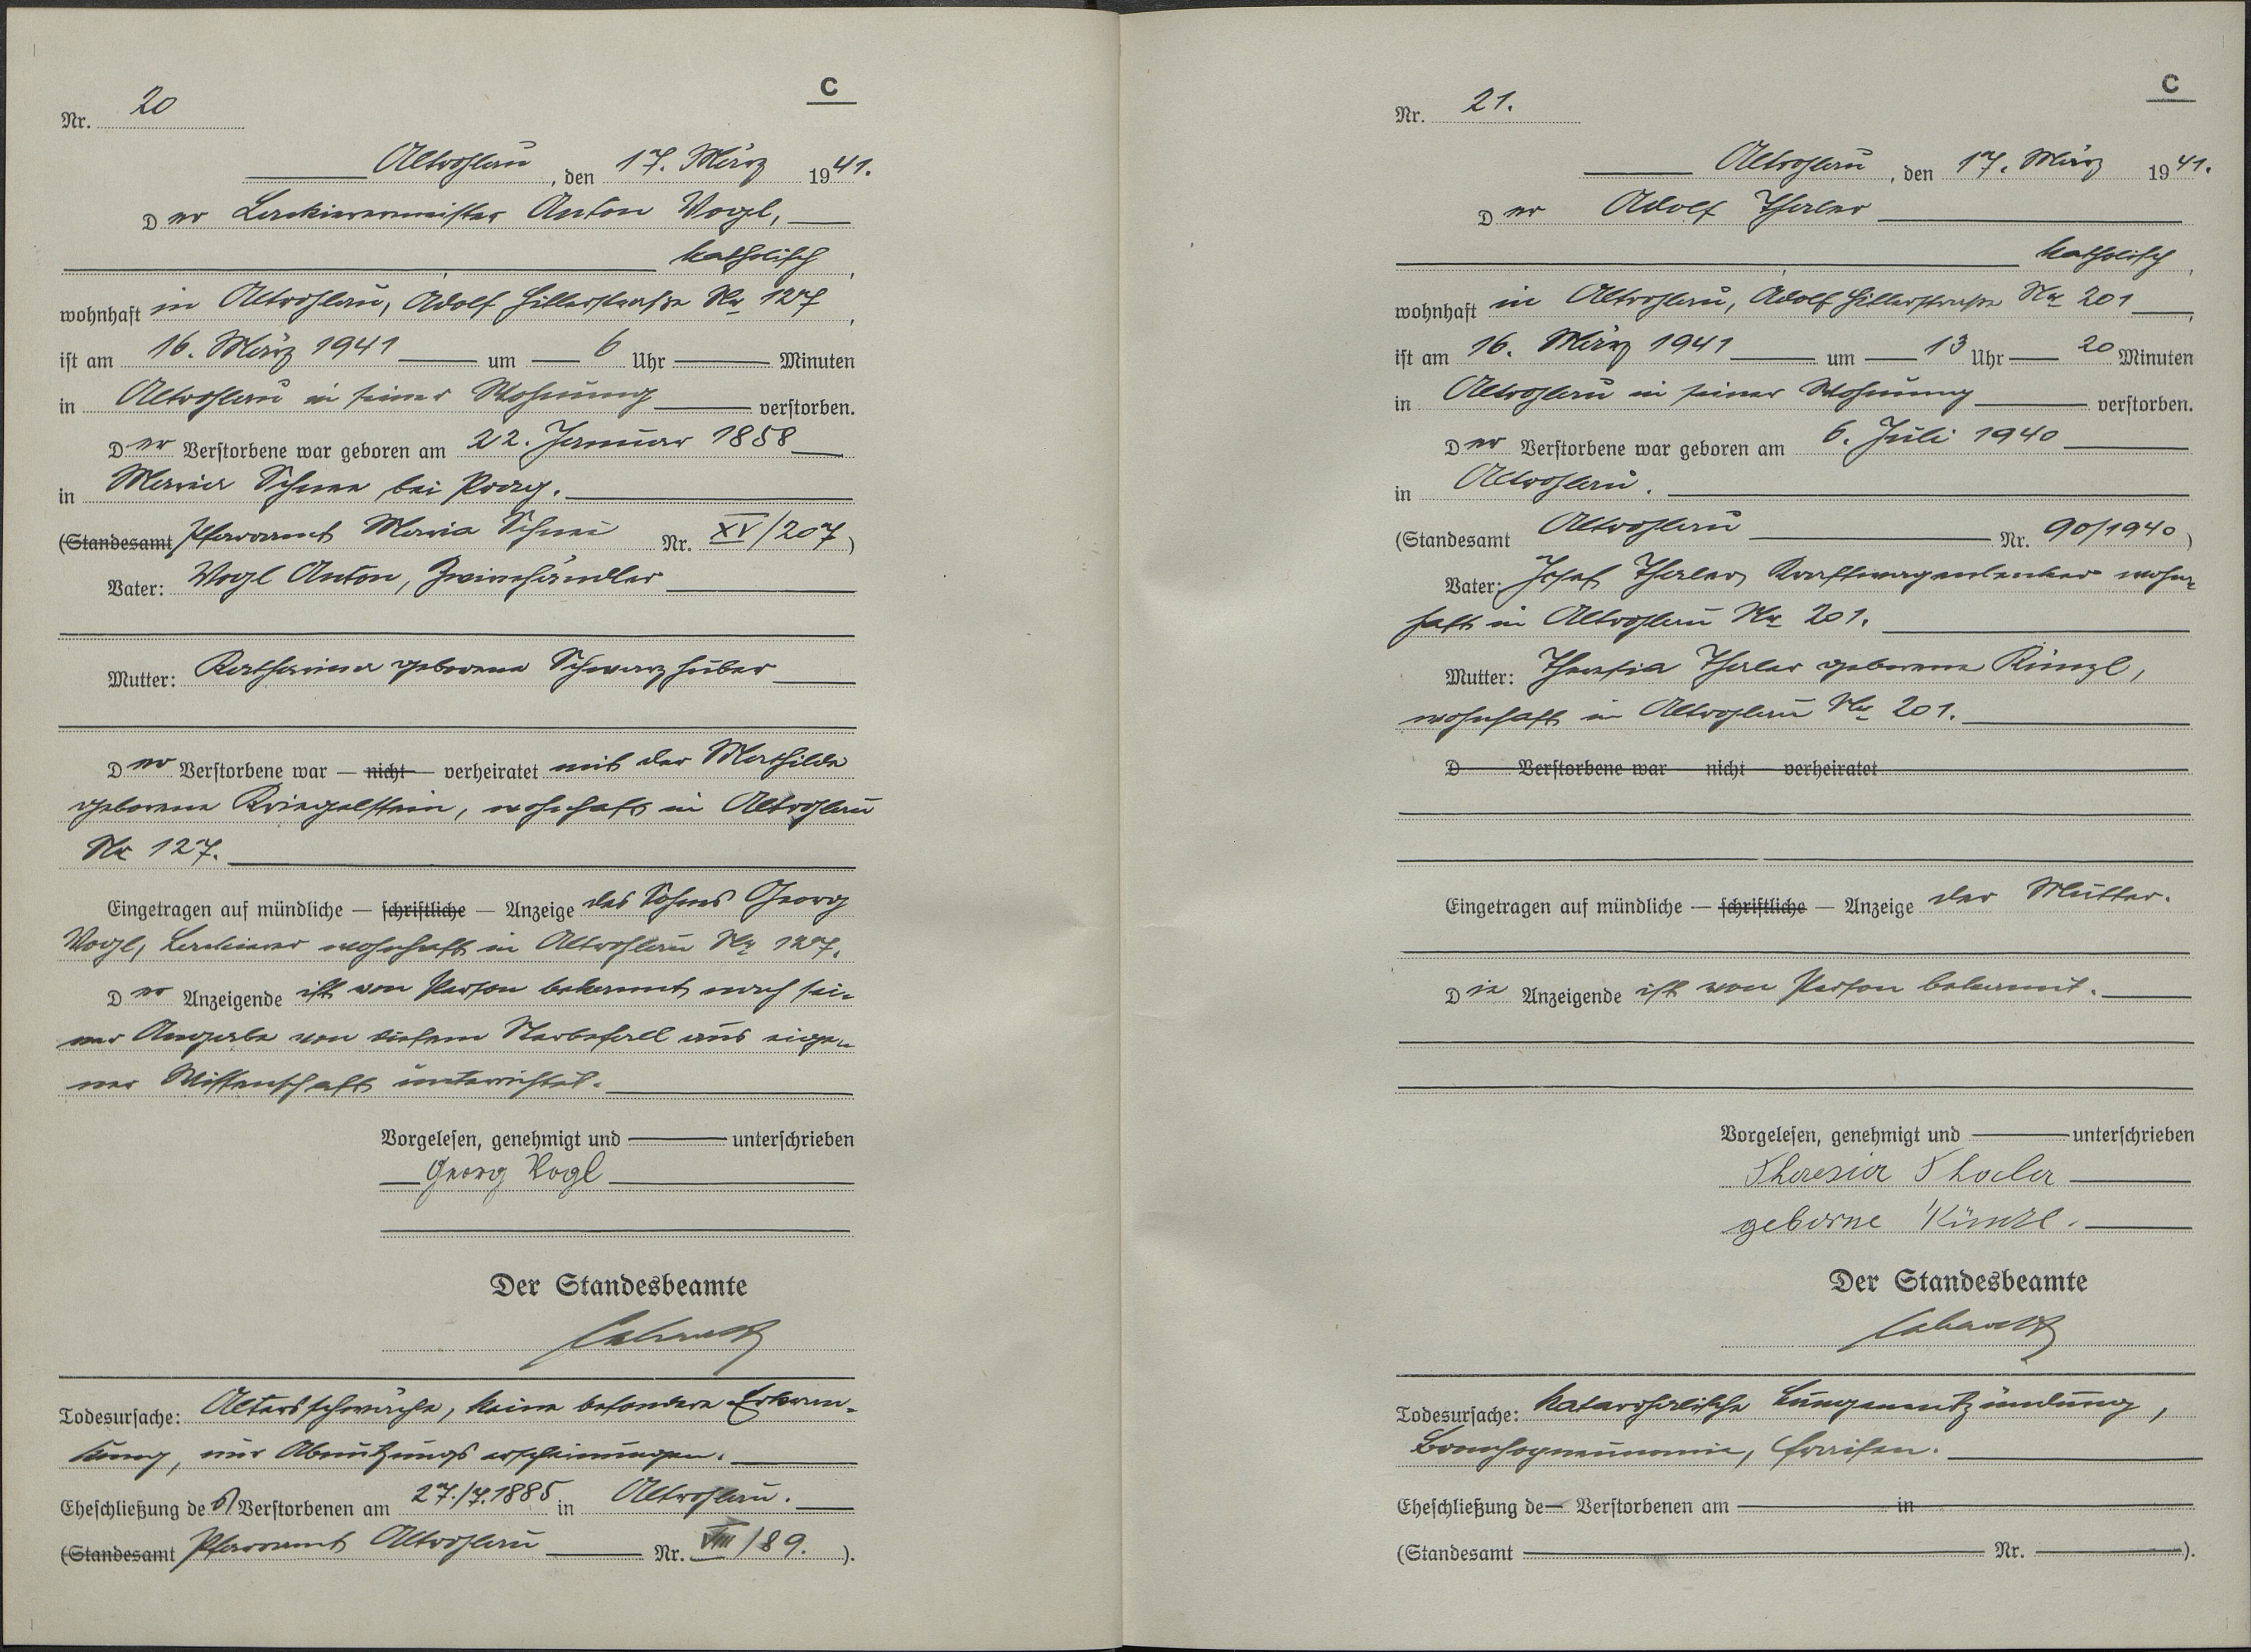 C
Nr. 20
Altrohlau, den 17. März 1941.
Der Lackierermeister Anton Vogl,
katholisch,
wohnhaft in Altrohlau, Adolf Hitlerstraße Nr 127,
ist am 16. März 1941 um 6 Uhr Minuten
in Altrohlau in seiner Wohnung verstorben.
Der Verstorbene war geboren am 22. Januar 1858
in Maria Schnee bei Prag.
(Standesamt Pfarramt Maria Schnee Nr. XV/207)
Vater: Vogl Anton, Zwirnhändler
Mutter: Katharina geborene Schwarzhuber
Der Verstorbene war — nicht — verheiratet mit der Mathilde
geborene Kriegelstein, wohnhaft in Altrohlau
Nr 127.
Eingetragen auf mündliche — schriftliche — Anzeige des Sohnes Georg
Vogl, Lackierer wohnhaft in Altrohlau Nr 127.
Der Anzeigende ist von Person bekannt, nach sei-
ner Angabe von diesem Sterbefall aus eige-
ner Wissenschaft unterrichtet.
Vorgelesen, genehmigt und unterschrieben
Georg Vogl
Der Standesbeamte
Todesursache: Altersschwäche, keine besondere Erkran-
kung, nur Abnützungserscheinungen.
Eheschließung des Verstorbenen am 27./7.1885 in Altrohlau.
(Standesamt Pfarramt Altrohlau Nr. VIII/89.).
C
Nr. 21.
Altrohlau, den 17. März 1941.
Der Adolf Thaler
katholisch,
wohnhaft in Altrohlau, Adolf Hitlerstraße Nr 201,
ist am 16. März 1941 um 13 Uhr 20 Minuten
in Altrohlau in seiner Wohnung verstorben.
Der Verstorbene war geboren am 6. Juli 1940
in Altrohlau.
(Standesamt Altrohlau Nr. 90/1940)
Vater: Josef Thaler, Kraftwagenlenker wohn-
haft in Altrohlau Nr 201.
Mutter: Theresia Thaler geborene Künzl,
wohnhaft in Altrohlau Nr 201.
D Verstorbene war — nicht — verheiratet
Eingetragen auf mündliche — schriftliche — Anzeige der Mutter.
Die Anzeigende ist von Person bekannt.
Vorgelesen, genehmigt und unterschrieben
Theresia Thaler
geborne Künzl.
Der Standesbeamte
Todesursache: Katarrhalische Lungenentzündung,
Bronchopneumonie, Fraisen.
Eheschließung de Verstorbenen am in
(Standesamt Nr. ).